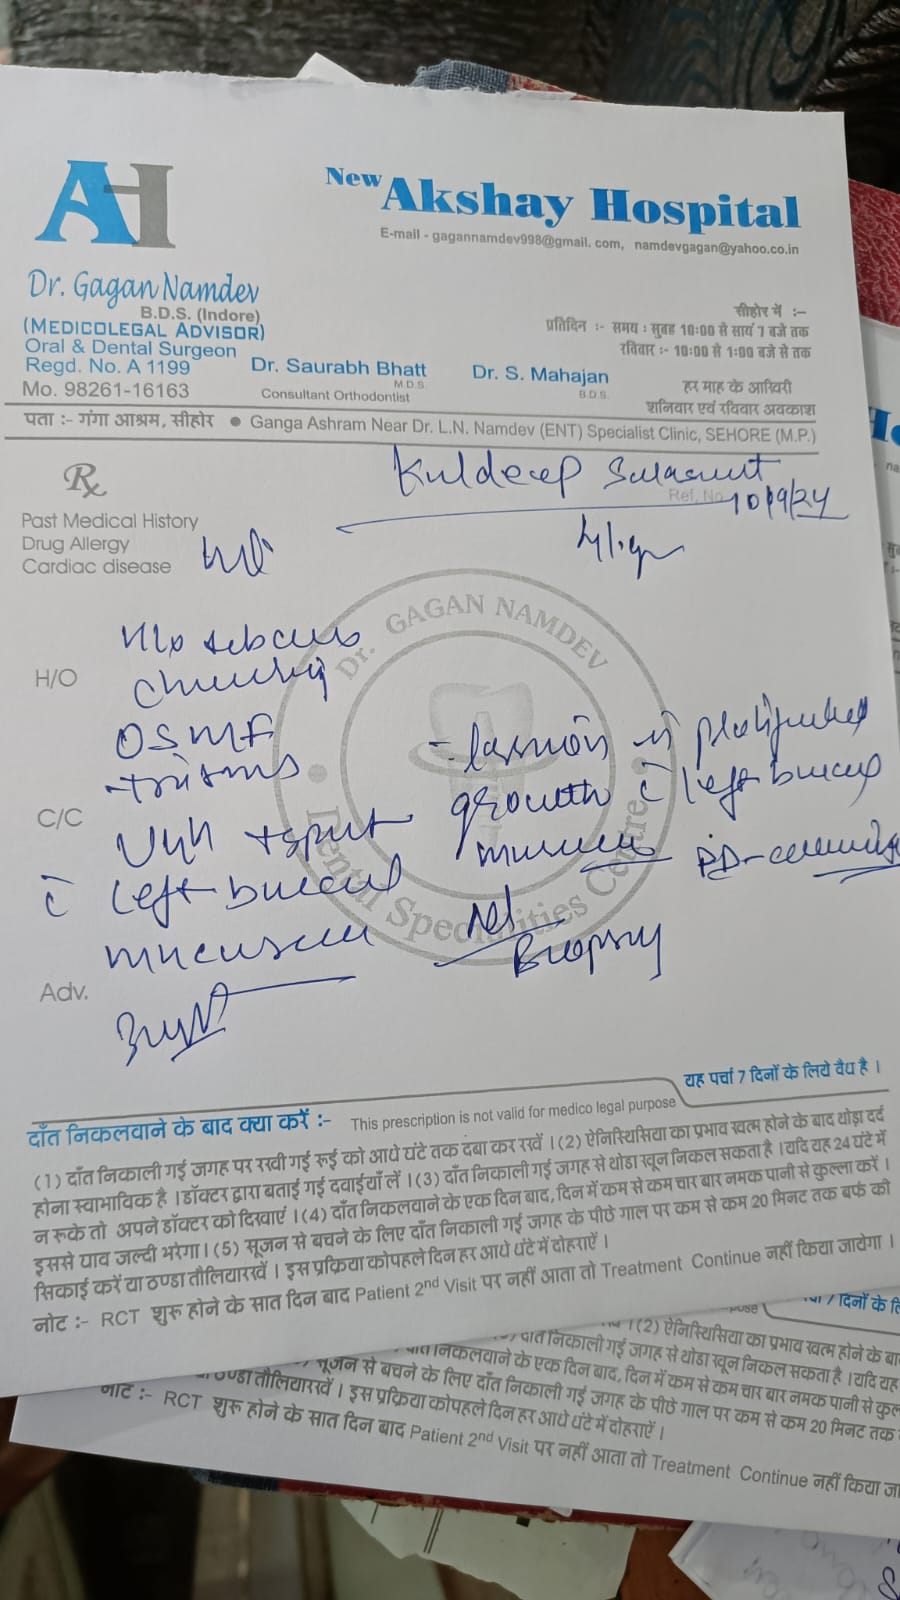 AH
New Akshay Hospital
E-mail - gagannamdev998@gmail. com, namdevgagan@yahoo.co.in
Dr. Gagan Namdev
B.D.S. (Indore)
(MEDICOLEGAL ADVISOR)
Oral & Dental Surgeon
Regd. No. A 1199
Mo. 98261-16163
Dr. Saurabh Bhatt
M.D.S.
Consultant Orthodontist
Dr. S. Mahajan
B.D.S.
सीहोर में :–
प्रतिदिन :- समय : सुबह 10:00 से सायं 7 बजे तक
रविवार :- 10:00 से 1:00 बजे से तक
हर माह के आखिरी
शनिवार एवं रविवार अवकाश
पता :- गंगा आश्रम, सीहोर ● Ganga Ashram Near Dr. L.N. Namdev (ENT) Specialist Clinic, SEHORE (M.P.)
Rx
Kuldeep
Ref. No. 10/9/24
Past Medical History
Drug Allergy
Cardiac disease
Dr. GAGAN NAMDEV
Dental Specialities Centre
H/O
OSMF
C/C
growth c̄ left buccal
c̄ left buccal
mucosa
Adv.
Biopsy
यह पर्चा 7 दिनों के लिये वैध है ।
दाँत निकलवाने के बाद क्या करें :– This prescription is not valid for medico legal purpose
(1) दाँत निकाली गई जगह पर रखी गई रूई को आधे घंटे तक दबा कर रखें । (2) ऐनिस्थिसिया का प्रभाव खत्म होने के बाद थोड़ा दर्द
होना स्वाभाविक है । डॉक्टर द्वारा बताई गई दवाईयाँ लें । (3) दाँत निकाली गई जगह से थोडा खून निकल सकता है । यदि यह 24 घंटे में
न रूके तो अपने डॉक्टर को दिखाएं । (4) दाँत निकलवाने के एक दिन बाद, दिन में कम से कम चार बार नमक पानी से कुल्ला करें ।
इससे घाव जल्दी भरेगा । (5) सूजन से बचने के लिए दाँत निकाली गई जगह के पीछे गाल पर कम से कम 20 मिनट तक बर्फ की
सिकाई करें या ठण्डा तौलियारखें । इस प्रक्रिया कोपहले दिन हर आधे घंटे में दोहराऐं ।
नोट :- RCT शुरू होने के सात दिन बाद Patient 2nd Visit पर नहीं आता तो Treatment Continue नहीं किया जायेगा ।
7 दिनों के लि
। (2) ऐनिस्थिसिया का प्रभाव खत्म होने के बा
दाँत निकाली गई जगह से थोडा खून निकल सकता है । यदि यह
निकलवाने के एक दिन बाद, दिन में कम से कम चार बार नमक पानी से कुल
सूजन से बचने के लिए दाँत निकाली गई जगह के पीछे गाल पर कम से कम 20 मिनट तक
ठण्डा तौलियारखें । इस प्रक्रिया कोपहले दिन हर आधे घंटे में दोहराऐं ।
नोट :- RCT शुरू होने के सात दिन बाद Patient 2nd Visit पर नहीं आता तो Treatment Continue नहीं किया जा